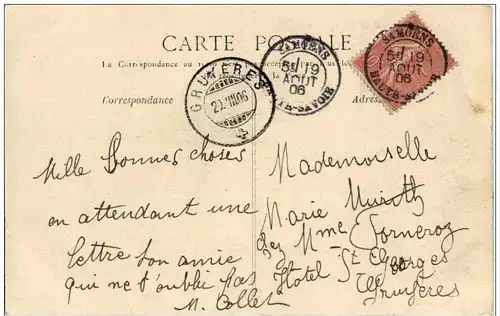 CARTE POSTALE
La Correspondance au
Correspondance
GRUYERES
20.VIII.06
SAMOENS
5E/19
AOUT
06
HTE-SAVOIE
SAMOENS
5E/19
AOUT
06
HTE-SAVOIE
Mille bonnes choses
en attendant une
lettre ton amie
qui ne t'oublie pas
M. Collet
Mademoiselle
Marie
chez Mme Corneroz
Hotel St Georges
Gruyères